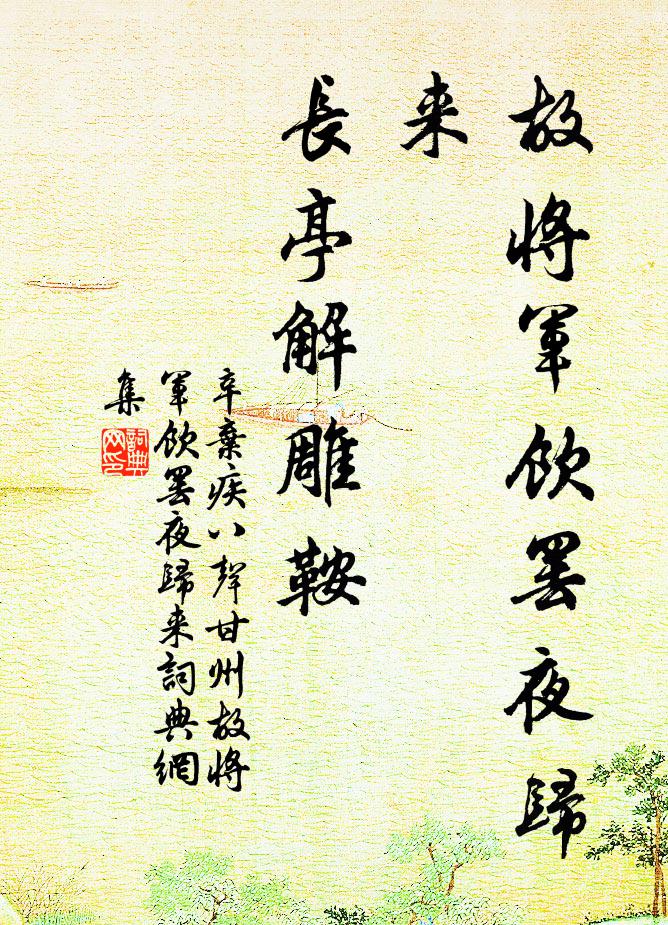 故将軍飲罢夜歸
来
長亭解雕鞍
辛棄疾八聲甘州故将
軍飲罢夜歸来詞典網
集
詞典
网印